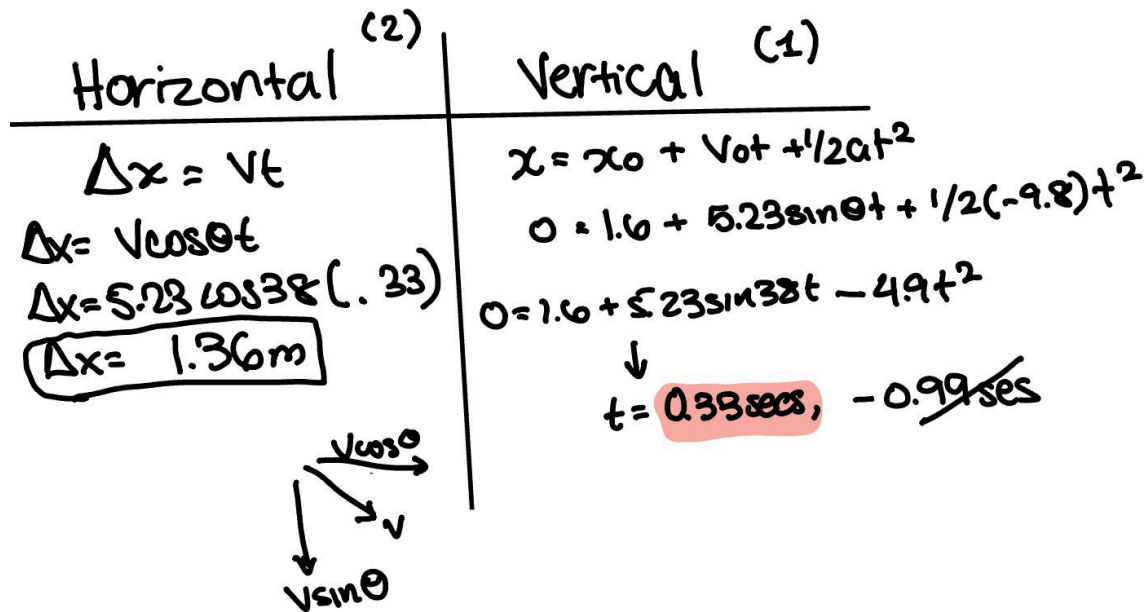 Horizontal (2)
Δx = Vt
Δx= Vcosθt
Δx=5.23 cos38(.33)
Δx= 1.36m
Vertical (1)
x= x0 + Vot +1/2at²
0 = 1.6 + 5.23sinθt + 1/2(-9.8)t²
0=1.6+5.23sin38t -4.9t²
↓
t= 0.33secs, -0.99ses
Vcosθ
V
Vsinθ